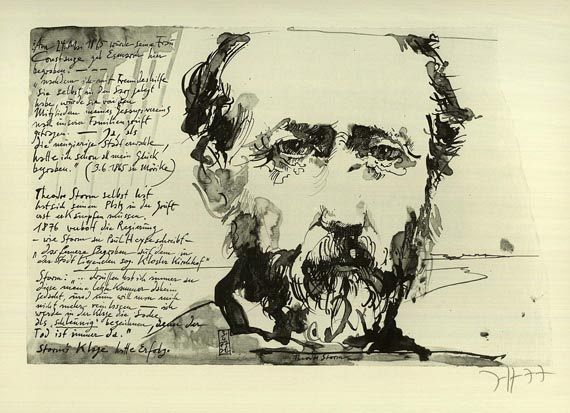 Am 24. Mai 1865 wurde seine Frau
Constanze geb. Esmarch hier
begraben. — — —
"nachdem ich mit Freundeshilfe
sie selbst in den Sarg gelegt
habe, wurde sie von den
Mitgliedern meines Gesangvereins
nach unserer Familiengruft
getragen. — Ja, als
die neugierige Stadt erwachte,
hatte ich schon all mein Glück
begraben." (3.6.1865 an Mörike)
Theodor Storm selbst hat
sich seinen Platz in der Gruft
erst erkämpfen müssen.
1876 verbot die Regierung
– wie Storm an Paul Heyse schreibt –
"das fernere Begraben auf dem in
der Stadt liegenden sog. Kloster Kirchhof"
Storm: ".. draußen hab ich immer an
diese meine letzte Kammer
gedacht, und nun will man mich
nicht mehr reinlassen — ich
werde in der Klage die Sache
als "schleunig" bezeichnen, denn der
Tod ist immer da."
Storms Klage hatte Erfolg.
Theodor Storm
77